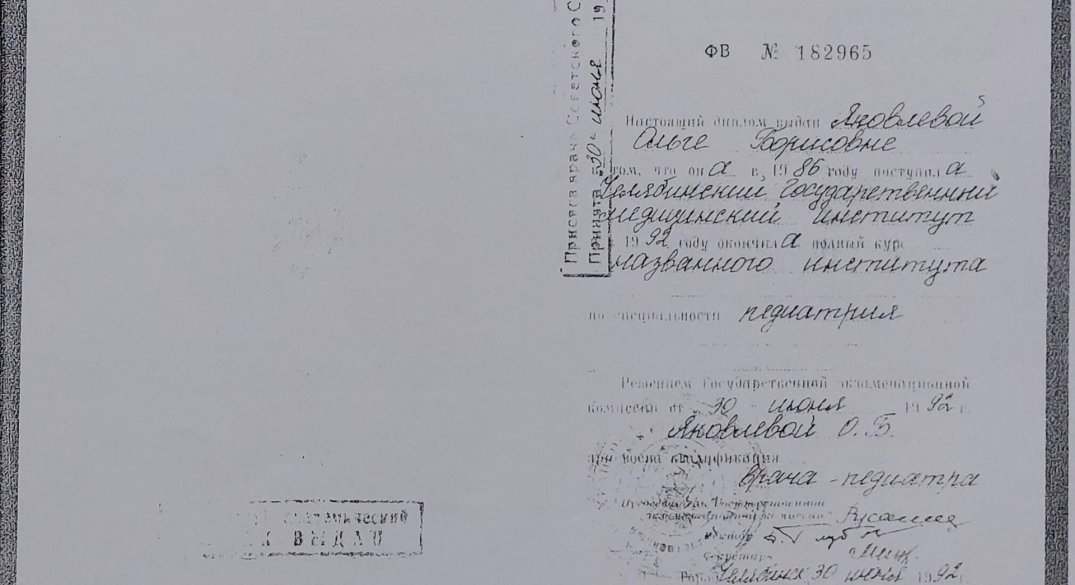 Присяга врача Советского С
Принята "30" июня 19
ФВ № 182965
Настоящий диплом выдан Яковлевой
Ольге Борисовне
том, что она в 1986 году поступила
Челябинский Государственный
медицинский институт
1992 году окончила полный курс
названного института
по специальности педиатрия
Решением Государственной экзаменационной
комиссии от 30 июня 1992 г.
Яковлевой О. Б.
присвоена квалификация
врача-педиатра
Председатель Государственной
экзаменационной комиссии
Ректор
Секретарь
Город Челябинск 30 июня 1992
ВЫДАН